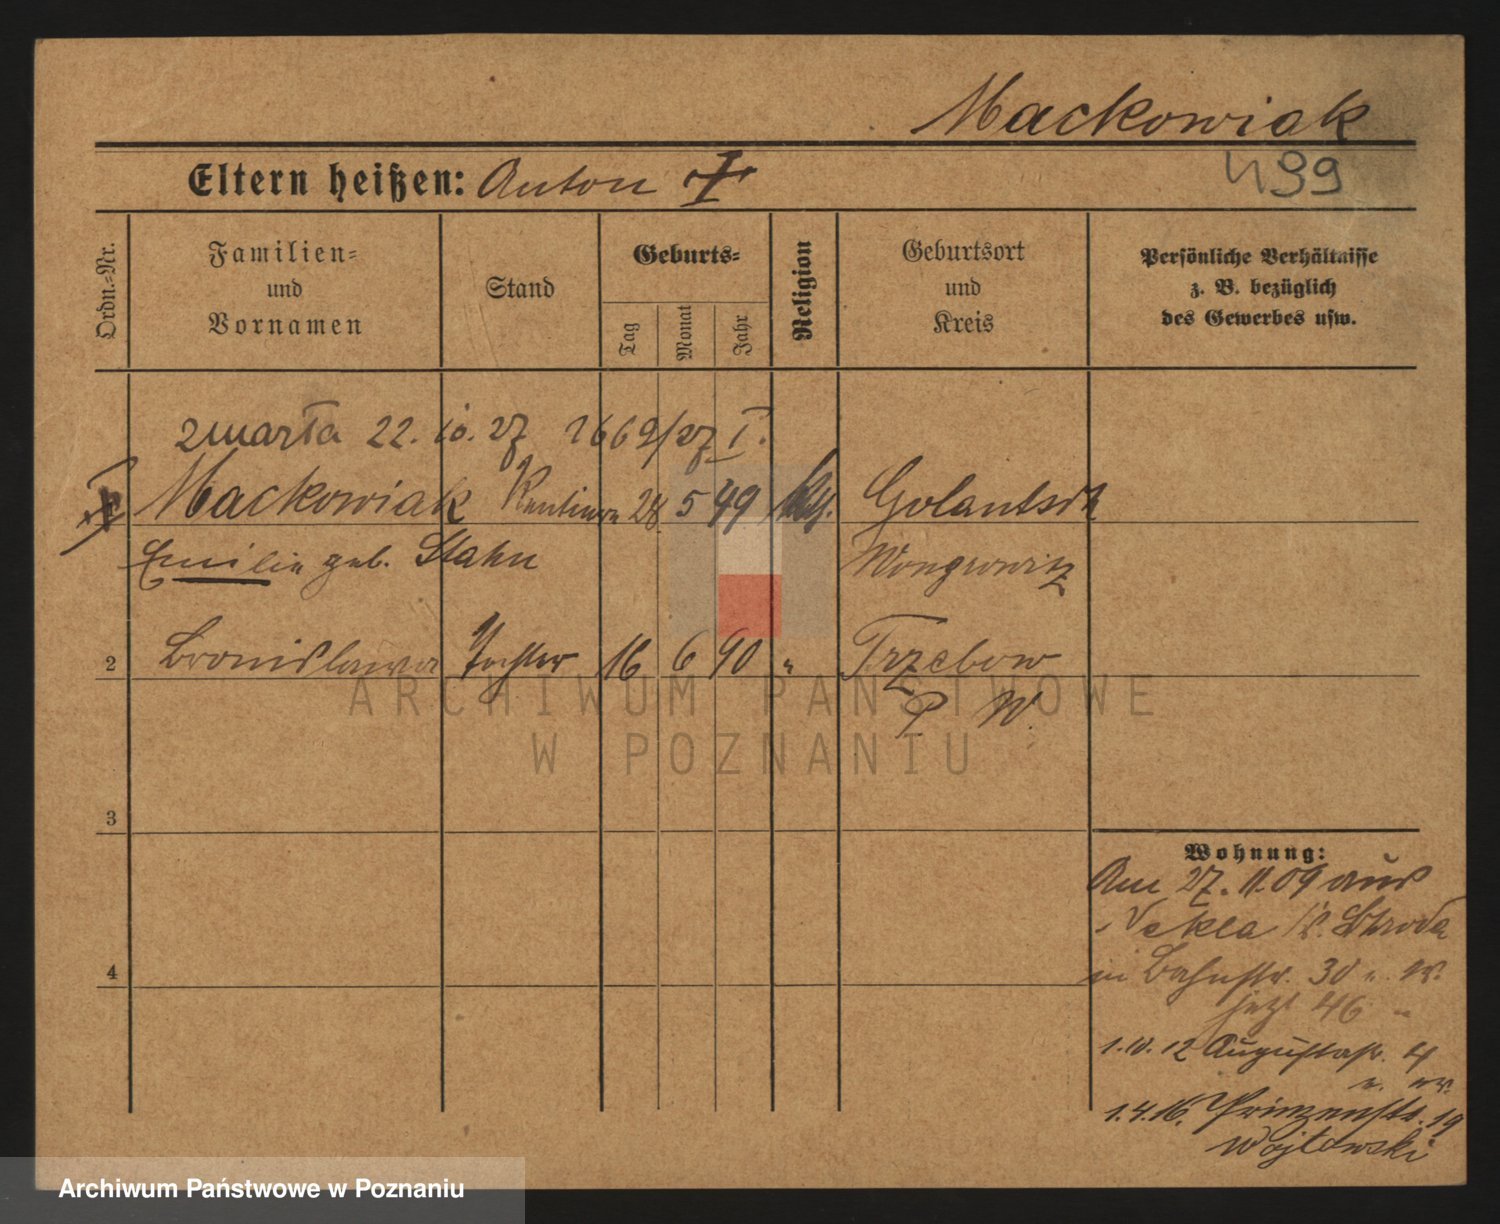 Mackowiak
499
Eltern heißen: Anton
Ordn.-Nr.
Familien- und Vornamen
Stand
Geburts-
Tag
Monat
Jahr
Religion
Geburtsort und Kreis
Persönliche Verhältnisse z. B. bezüglich des Gewerbes usw.
zmarła 22. 10. 27 1669/27 I.
Mackowiak 28 5 49 kth. Golantsch
Emilie geb. Stahn Wongrowitz
2 Bronislawa Tochter 16 6 90 " Trzebow
P W.
3
Wohnung:
Am 27. 11. 09 aus
Nekla K. Schroda
in Bahnstr. 30
jetzt 46 "
4
1. 10. 12 Augustastr. 4
1. 4. 16. Prinzenstr. 19
Wojtowski
ARCHIWUM PAŃSTWOWE
W POZNANIU
Archiwum Państwowe w Poznaniu